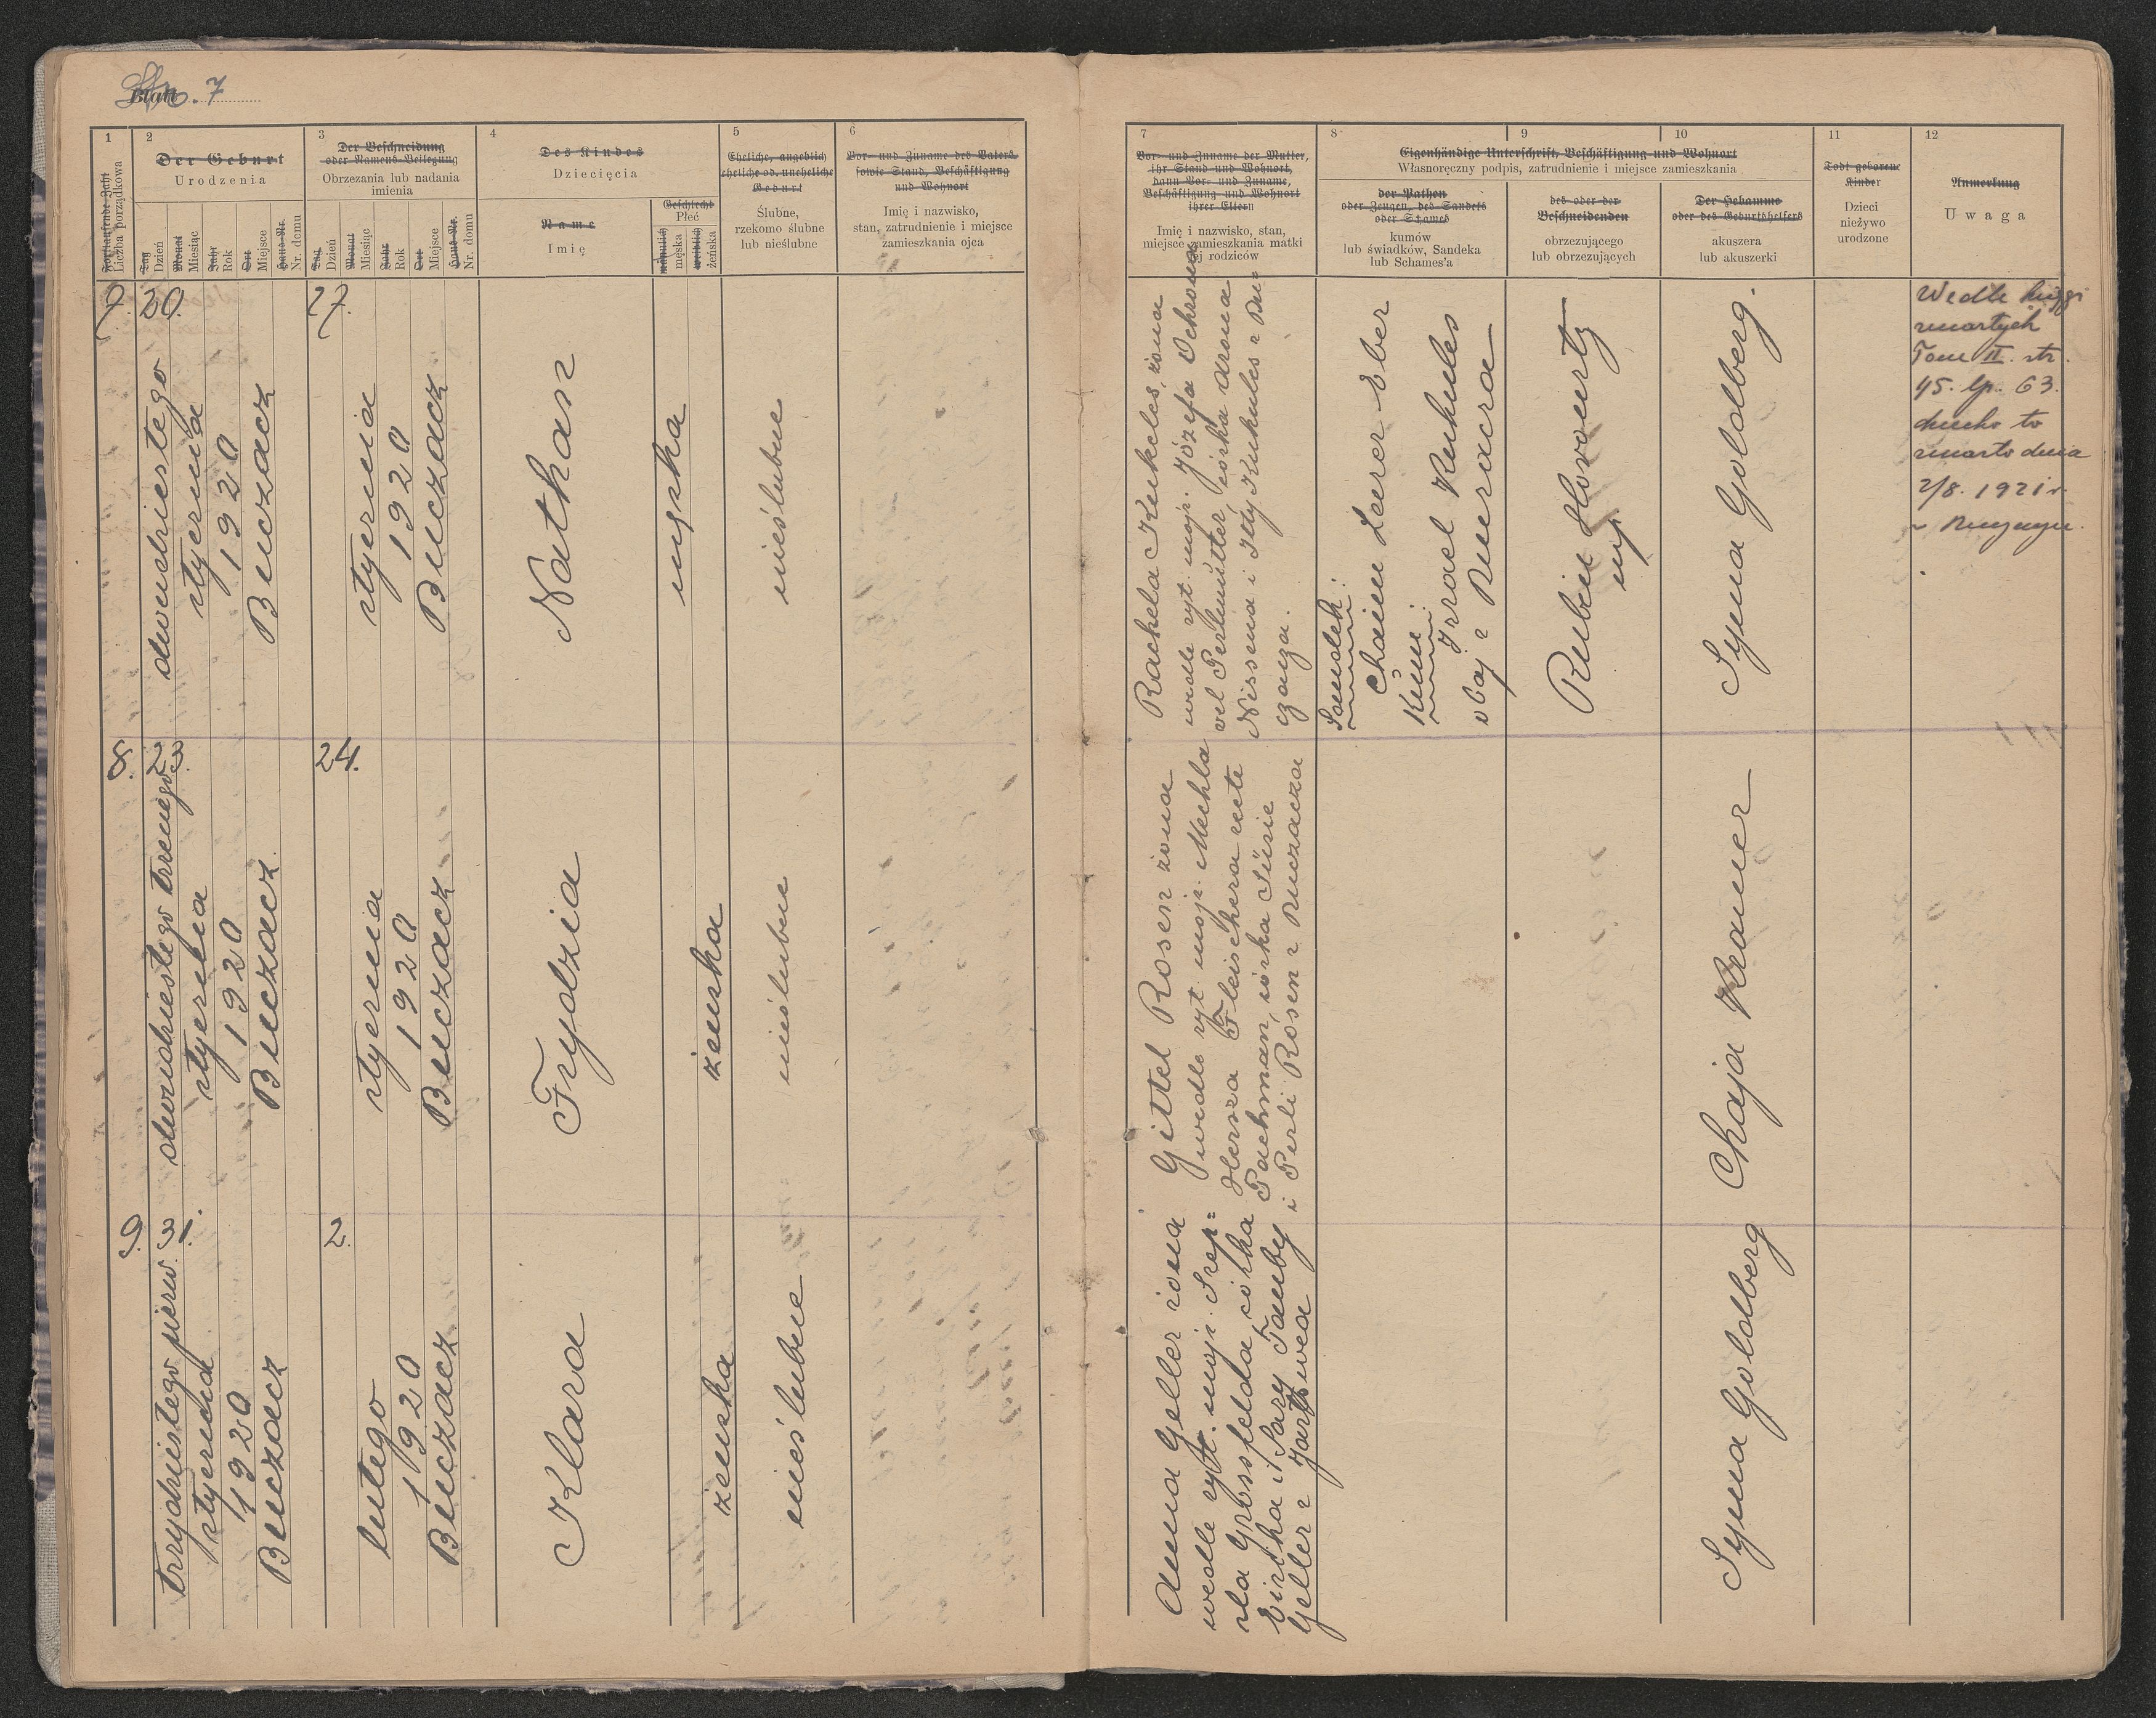 Str. 7
1
2
3
4
5
6
Fortlaufende Zahl
Liczba porządkowa
Der Geburt
Urodzenia
Der Beschneidung
oder Namens-Beilegung
Obrzezania lub nadania
imienia
Des Kindes
Dziecięcia
Eheliche, angeblich
eheliche od. uneheliche
Geburt
Ślubne,
rzekomo ślubne
lub nieślubne
Vor- und Zuname des Vaters,
sowie Stand, Beschäftigung
und Wohnort
Imię i nazwisko,
stan, zatrudnienie i miejsce
zamieszkania ojca
Tag
Dzień
Monat
Miesiąc
Jahr
Rok
Ort
Miejsce
Haus-Nr.
Nr. domu
Tag
Dzień
Monat
Miesiąc
Jahr
Rok
Ort
Miejsce
Haus-Nr.
Nr. domu
Name
Imię
Geschlecht
Płeć
männlich
męska
weiblich
żeńska
7
8
9
10
11
12
Vor- und Zuname der Mutter,
ihr Stand und Wohnort,
dann Vor- und Zuname,
Beschäftigung und Wohnort
ihrer Eltern
Imię i nazwisko, stan,
miejsce zamieszkania matki
i jej rodziców
Eigenhändige Unterschrift, Beschäftigung und Wohnort
Własnoręczny podpis, zatrudnienie i miejsce zamieszkania
der Pathen
oder Zeugen, des Sandeks
oder Schames
kumów
lub świadków, Sandeka
lub Schames'a
des oder der
Beschneidenden
obrzezującego
lub obrzezujących
Der Hebamme
oder des Geburtshelfers
akuszera
lub akuszerki
Todt geborene
Kinder
Dzieci
nieżywo
urodzone
Anmerkung
Uwaga
7.
20.
dwudziestego
stycznia
1920
Buczacz
27.
stycznia
1920
Buczacz
Nathan
męska
nieślubne
Rachela Kukeles, żona
wedle ryt. mojż. Józefa Ochrona
vel Perlmutter, córka Arona
Nissena i Itty Kukules z Bu=
czacza.
Sandek:
Chaim Leser Eber
Kum:
Izrael Kukules
obaj z Buczacza
Rubin Horowitz
mp
Syma Goldberg.
Wedle księgi
zmarłych
Tom II. str.
45. lp. 63.
dziecko to
zmarło dnia
2/8. 1921 r.
8.
23.
dwudziestego trzeciego
stycznia
1920
Buczacz
24.
stycznia
1920
Buczacz
Frydzia
żeńska
nieślubne
Gittel Rosen żona
wedle ryt. mojż. Mechla
Hersza Fleischera recte
Pachman, córka Süsie
i Perli Rosen z Buczacza
Chaja Kramer
9.
31.
trzydziestego pierw.
stycznia
1920
Buczacz
2.
lutego
1920
Buczacz
Klara
żeńska
nieślubne
Anna Geller żona
wedle ryt. mojż. Szep=
sla Grossfelda, córka
Hirschka i Sary Tauby
Geller z Jazłowca
Syma Goldberg